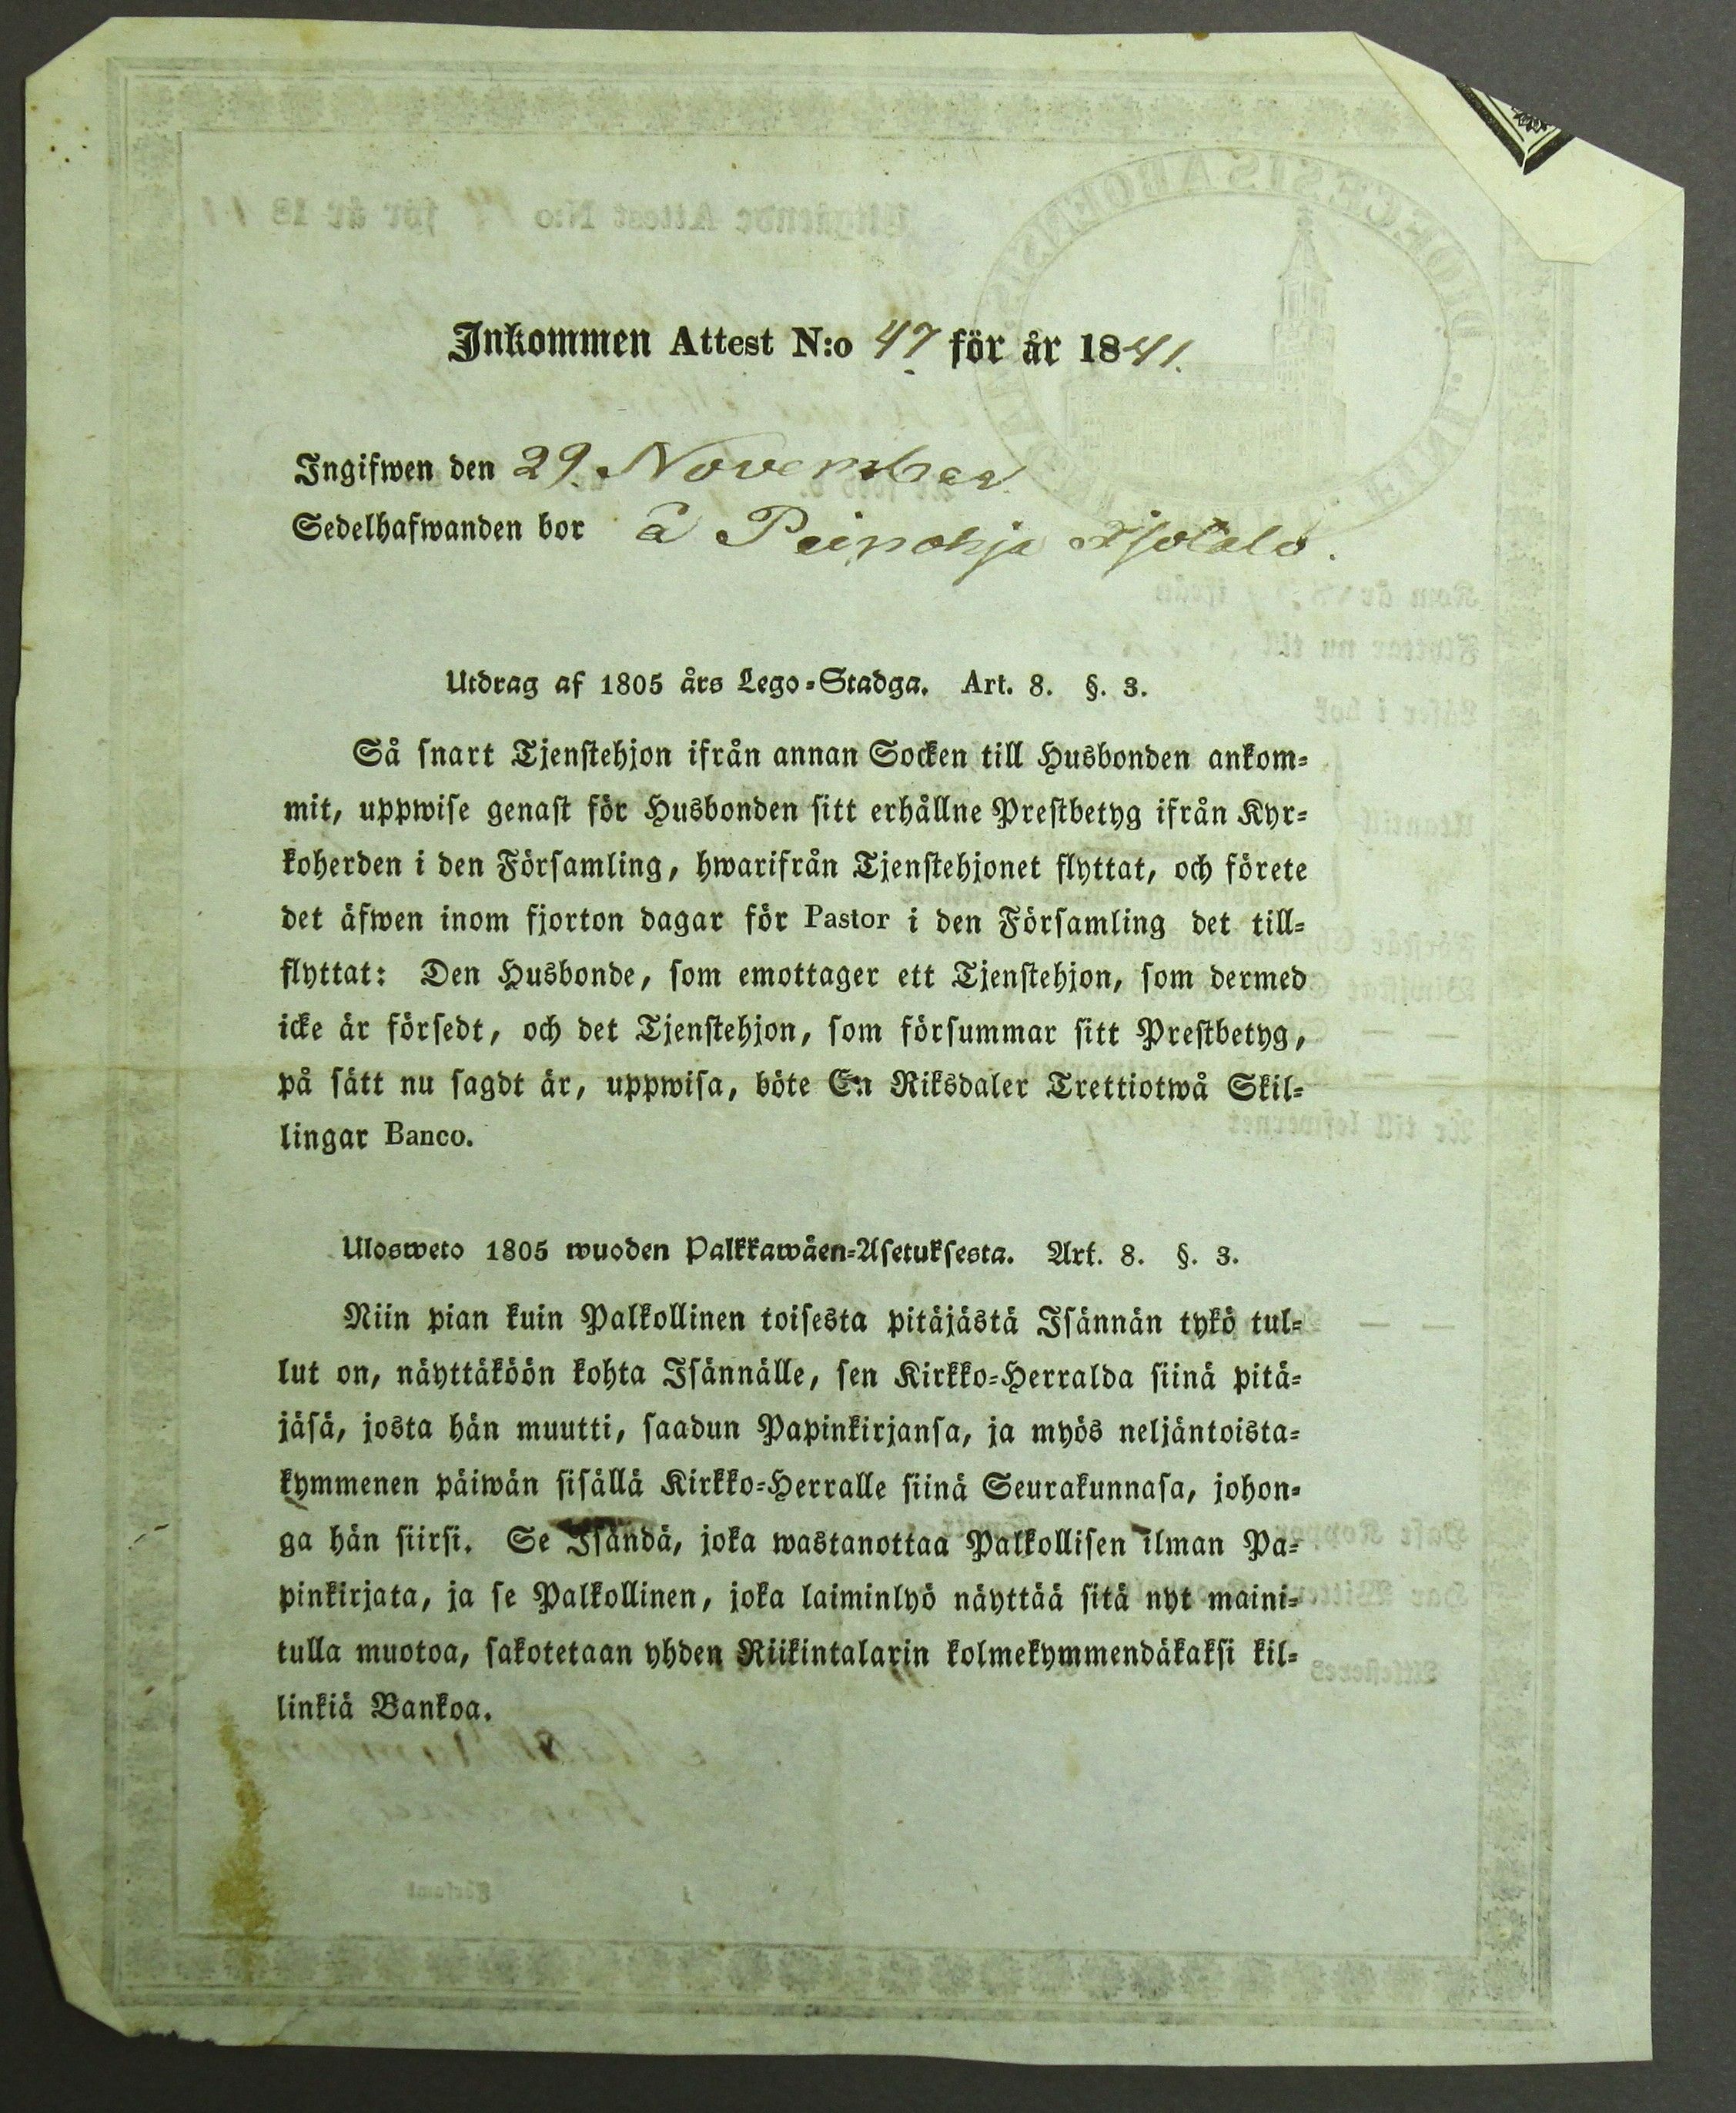 Inkommen Attest N:o 47 för år 1841.
Ingifwen den 29. November
Sedelhafwanden bor å Peipohja
Utdrag af 1805 års Lego-Stadga. Art. 8. §. 3.
Så snart Tjenstehjon ifrån annan Socken till Husbonden ankom-
mit, uppwise genast för Husbonden sitt erhållne Prestbetyg ifrån Kyr-
koherden i den Församling, hwarifrån Tjenstehjonet flyttat, och förete
det äfwen inom fjorton dagar för Pastor i den Församling det till-
flyttat: Den Husbonde, som emottager ett Tjenstehjon, som dermed
icke är försedt, och det Tjenstehjon, som försummar sitt Prestbetyg,
på sätt nu sagdt är, uppwisa, böte En Riksdaler Trettiotwå Skil-
lingar Banco.
Ulosweto 1805 wuoden Palkkawäen-Asetuksesta. Art. 8. §. 3.
Niin pian kuin Palkollinen toisesta pitäjästä Isännän tykö tul-
lut on, näyttäköön kohta Isännälle, sen Kirkko-Herralda siinä pitä-
jäsä, josta hän muutti, saadun Papinkirjansa, ja myös neljäntoista-
kymmenen päiwän sisällä Kirkko-Herralle siinä Seurakunnasa, johon-
ga hän siirsi. Se Isändä, joka wastanottaa Palkollisen ilman Pa-
pinkirjata, ja se Palkollinen, joka laiminlyö näyttää sitä nyt maini-
tulla muotoa, sakotetaan yhden Riikintalarin kolmekymmendäkaksi kil-
linkiä Bankoa.